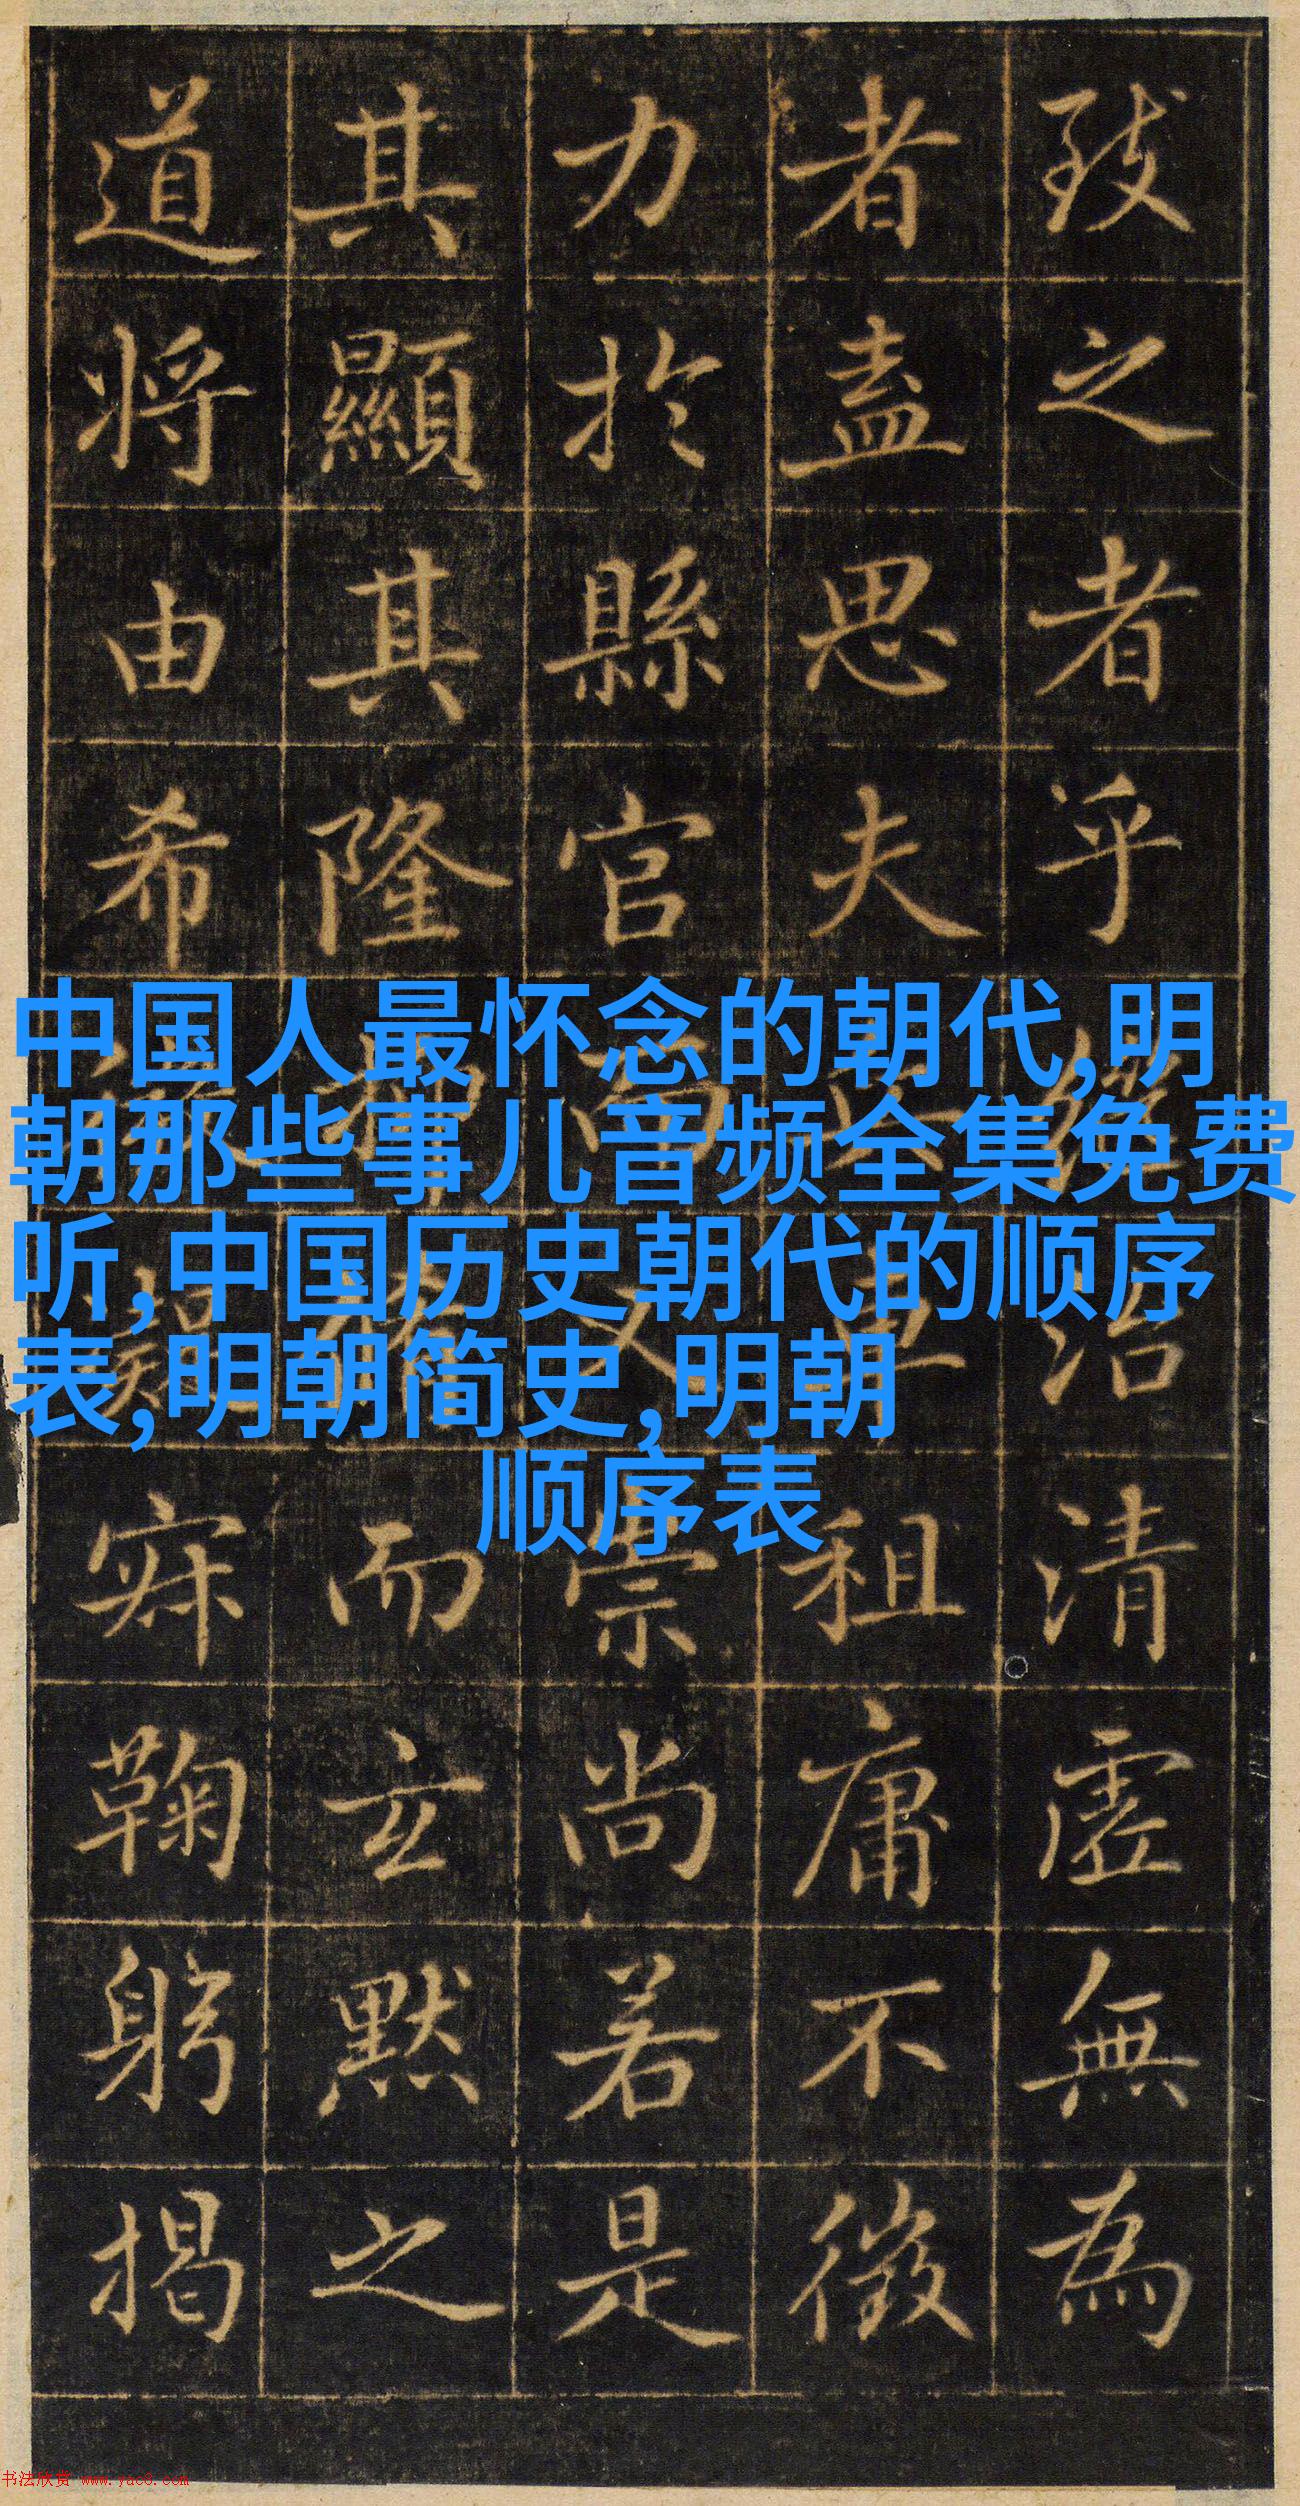 致之者乎
治清虛無為
者盡思夫
租庸不徵
力於縣官而又崇尚若是
其顯其隆
而玄默之
道將由希
寂鞠躬揭
中国人最怀念的朝代,明
朝那些事儿音频全集免费
听,中国历史朝代的顺序
表,明朝简史,明朝
顺序表
书法欣赏 www.yac8.com